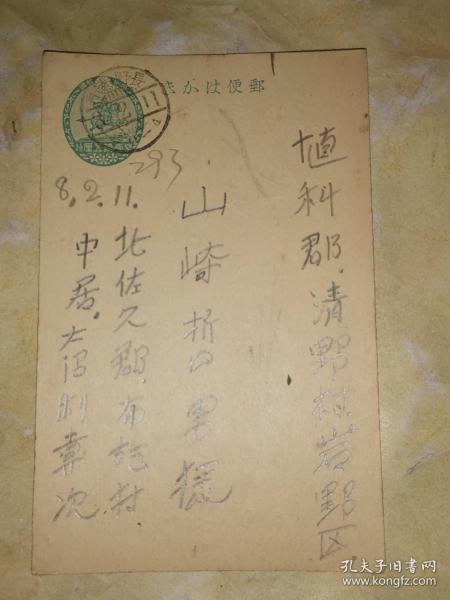 郵便はかき
埴科郡.清野村岩野区
山崎哲男様
293
8.2.11.
北佐久郡.布施村.
中居.大沼
孔夫子旧书网
www.kongfz.com